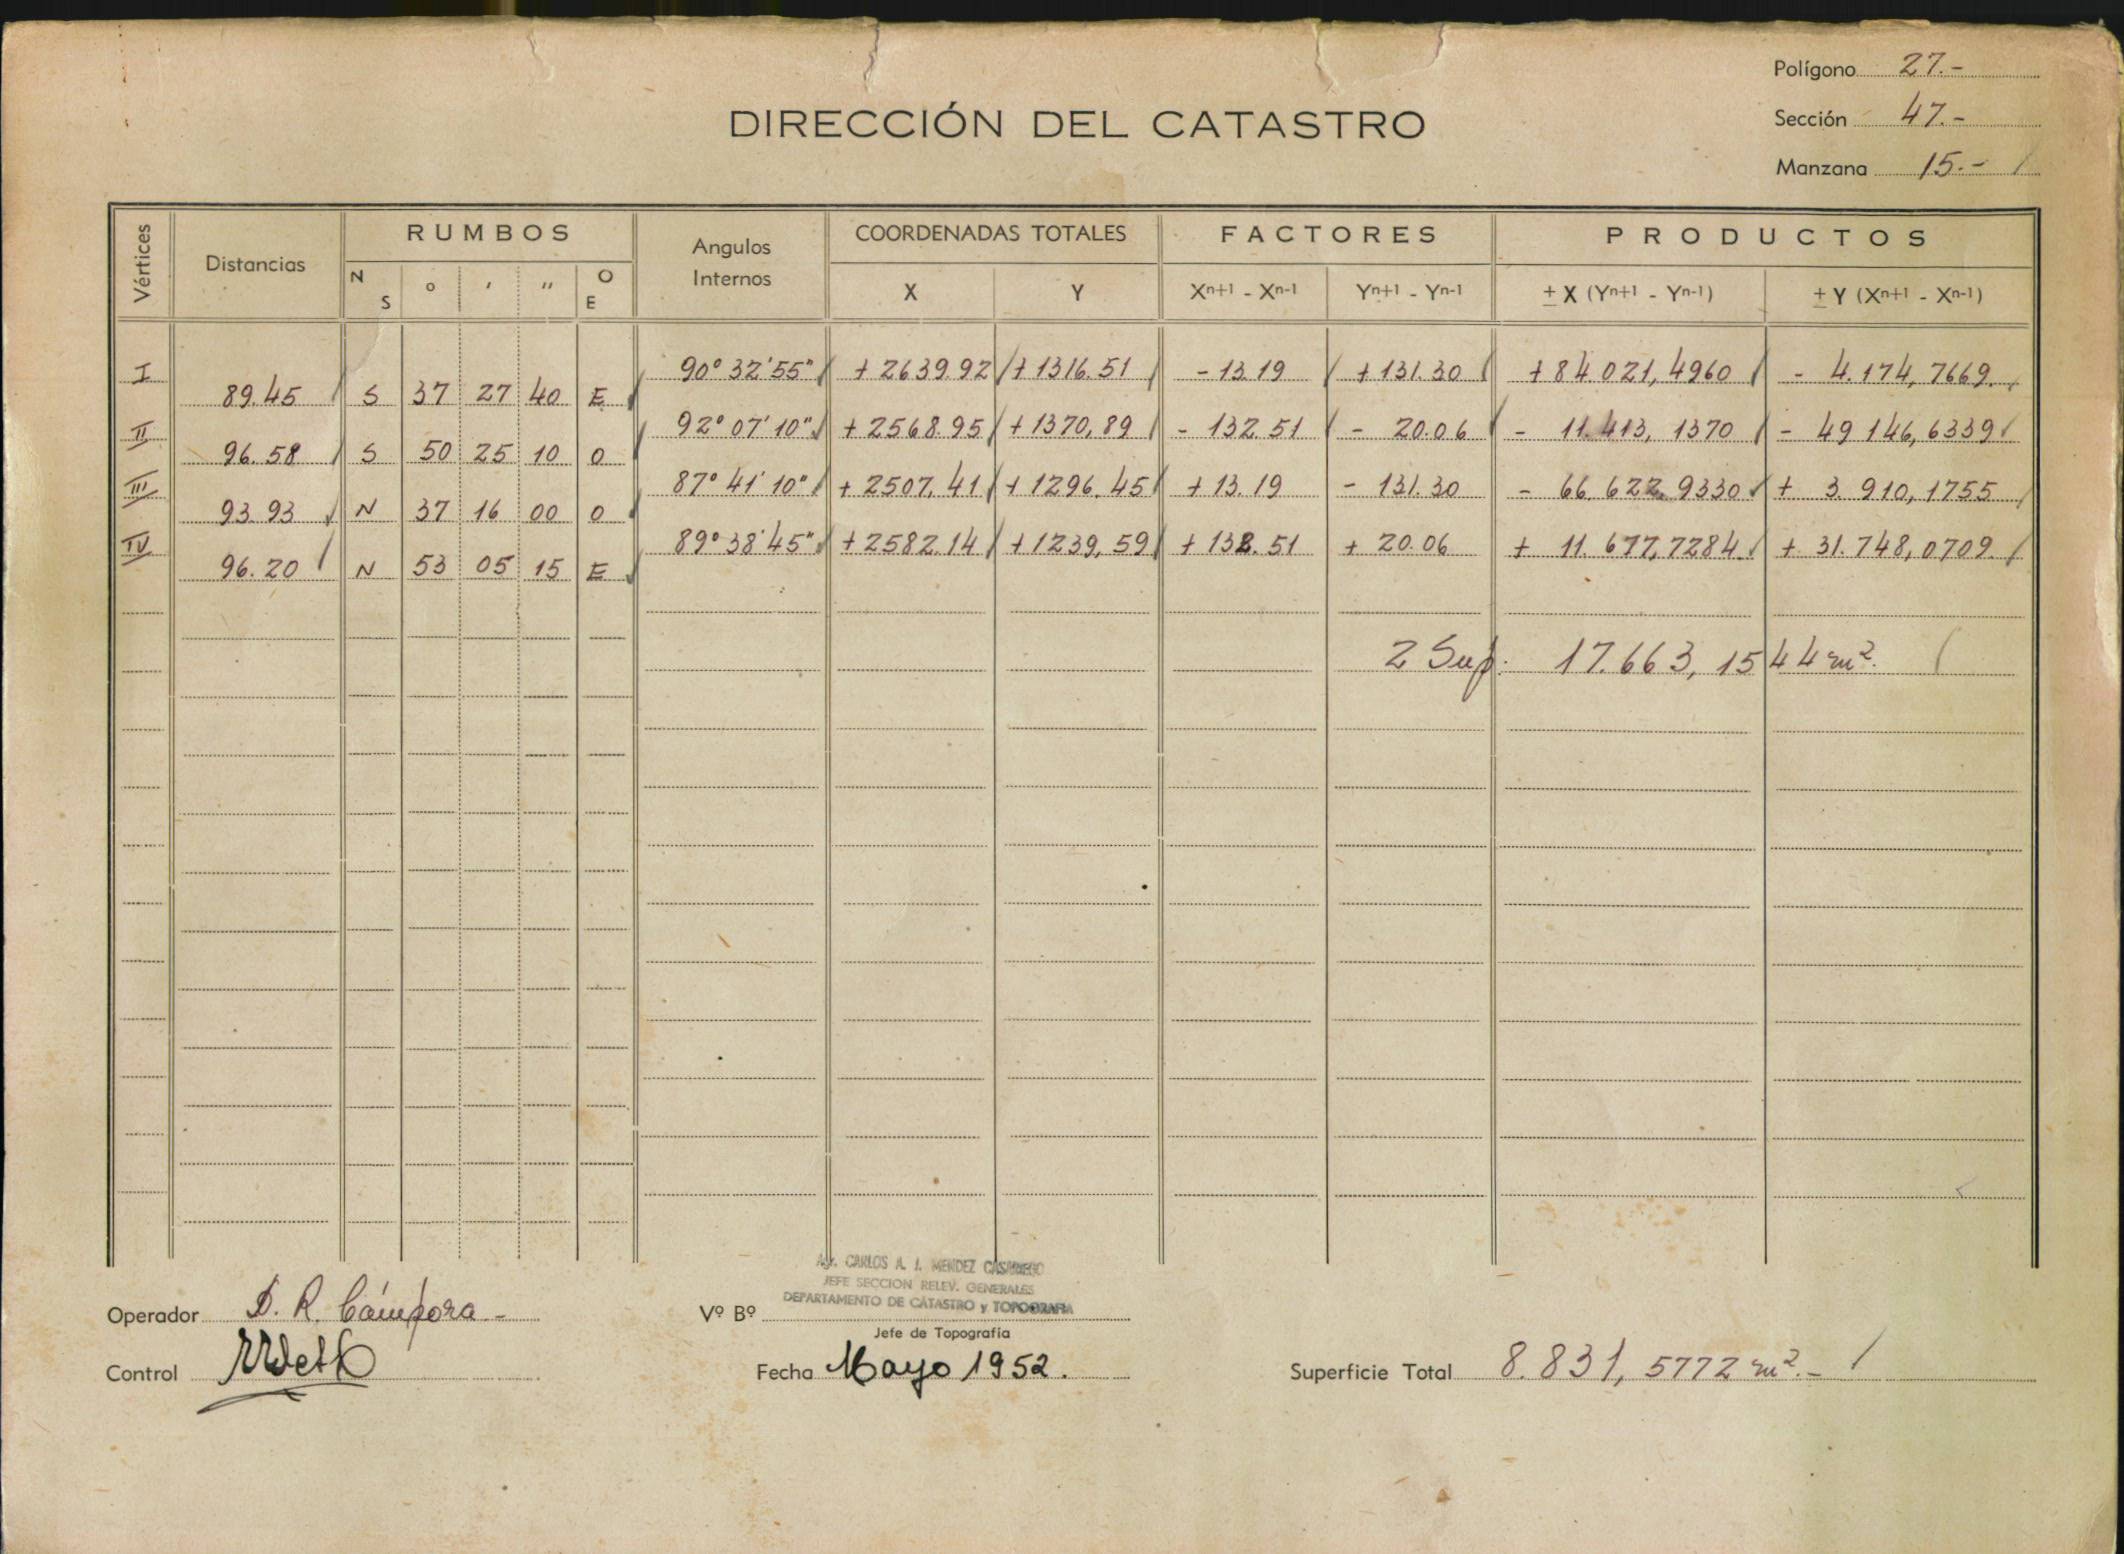 Polígono 27.-
DIRECCIÓN DEL CATASTRO
Sección 47.-
Manzana 15.-
Vértices Distancias RUMBOS Angulos Internos COORDENADAS TOTALES FACTORES PRODUCTOS
N S ° ' " O E X Y Xn+1 - Xn-1 Yn+1 - Yn-1 ± X (Yn+1 - Yn-1) ± Y (Xn+1 - Xn-1)
I 90° 32' 55" + 2639.92 + 1316.51 - 13.19 + 131.30 + 84.021,4960 - 4.174,7669.
89.45 S 37 27 40 E
II 92° 07' 10" + 2568.95 + 1370,89 - 132.51 - 20.06 - 11.413,1370 - 49 146,6339
96.58 S 50 25 10 O
III 87° 41' 10" + 2507.41 + 1296.45 + 13.19 - 131.30 - 66.622,9330 + 3.910,1755
93.93 N 37 16 00 O
IV 89° 38' 45" + 2582.14 + 1239,59 + 132.51 + 20.06 + 11.677,7284 + 31.748,0709.
96.20 N 53 05 15 E
2 Sup. 17.663,1544 m².
Agr. CARLOS A. J. MENDEZ CASARIEGO
JEFE SECCION RELEV. GENERALES
DEPARTAMENTO DE CATASTRO y TOPOGRAFIA
Operador D. R. Cámpora - Vº Bº
Jefe de Topografía
Control Fecha Mayo 1952. Superficie Total 8.831,5772 m².-